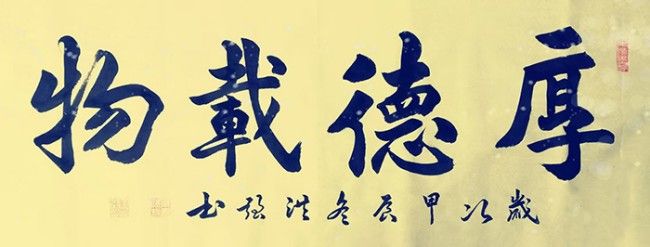 厚德載物
歲次甲辰冬洪强书